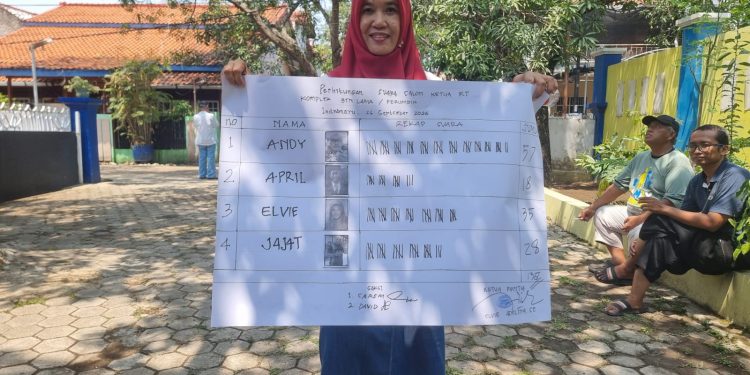 Perhitungan Suara Calon Ketua RT
Komplek BTN Lama / Perumdia
Indramayu, 26 September 2026
NO NAMA REKAP SUARA
1 ANDY 57
2 APRIL 18
3 ELVIE 35
4 JAJAT 28
138
SAKSI
1. CAREM
2. DAVID
KETUA PANITIA